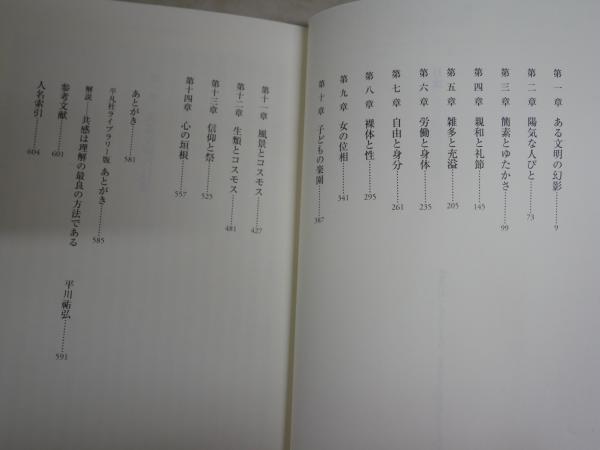 第一章 ある文明の幻影………9
第二章 陽気な人びと………73
第三章 簡素とゆたかさ………99
第四章 親和と礼節………145
第五章 雑多と充溢………205
第六章 労働と身体………235
第七章 自由と身分………261
第八章 裸体と性………295
第九章 女の位相………341
第十章 子どもの楽園………387
第十一章 風景とコスモス………427
第十二章 生類とコスモス………481
第十三章 信仰と祭………525
第十四章 心の垣根………557
あとがき………581
平凡社ライブラリー版 あとがき………585
解説――共感は理解の最良の方法である 平川祐弘………591
参考文献………601
人名索引………604